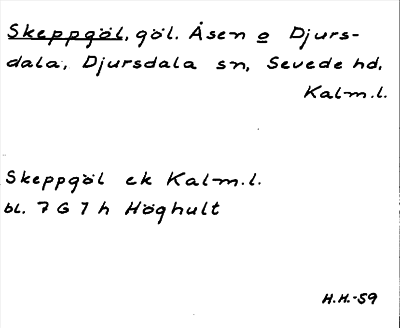 Skeppgöl, göl. Åsen o Djurs-
dala, Djursdala sn, Sevede hd,
Kalm.l.
Skeppgöl ek Kalm.l.
bl. 7 G 7 h Höghult
H.H.-59